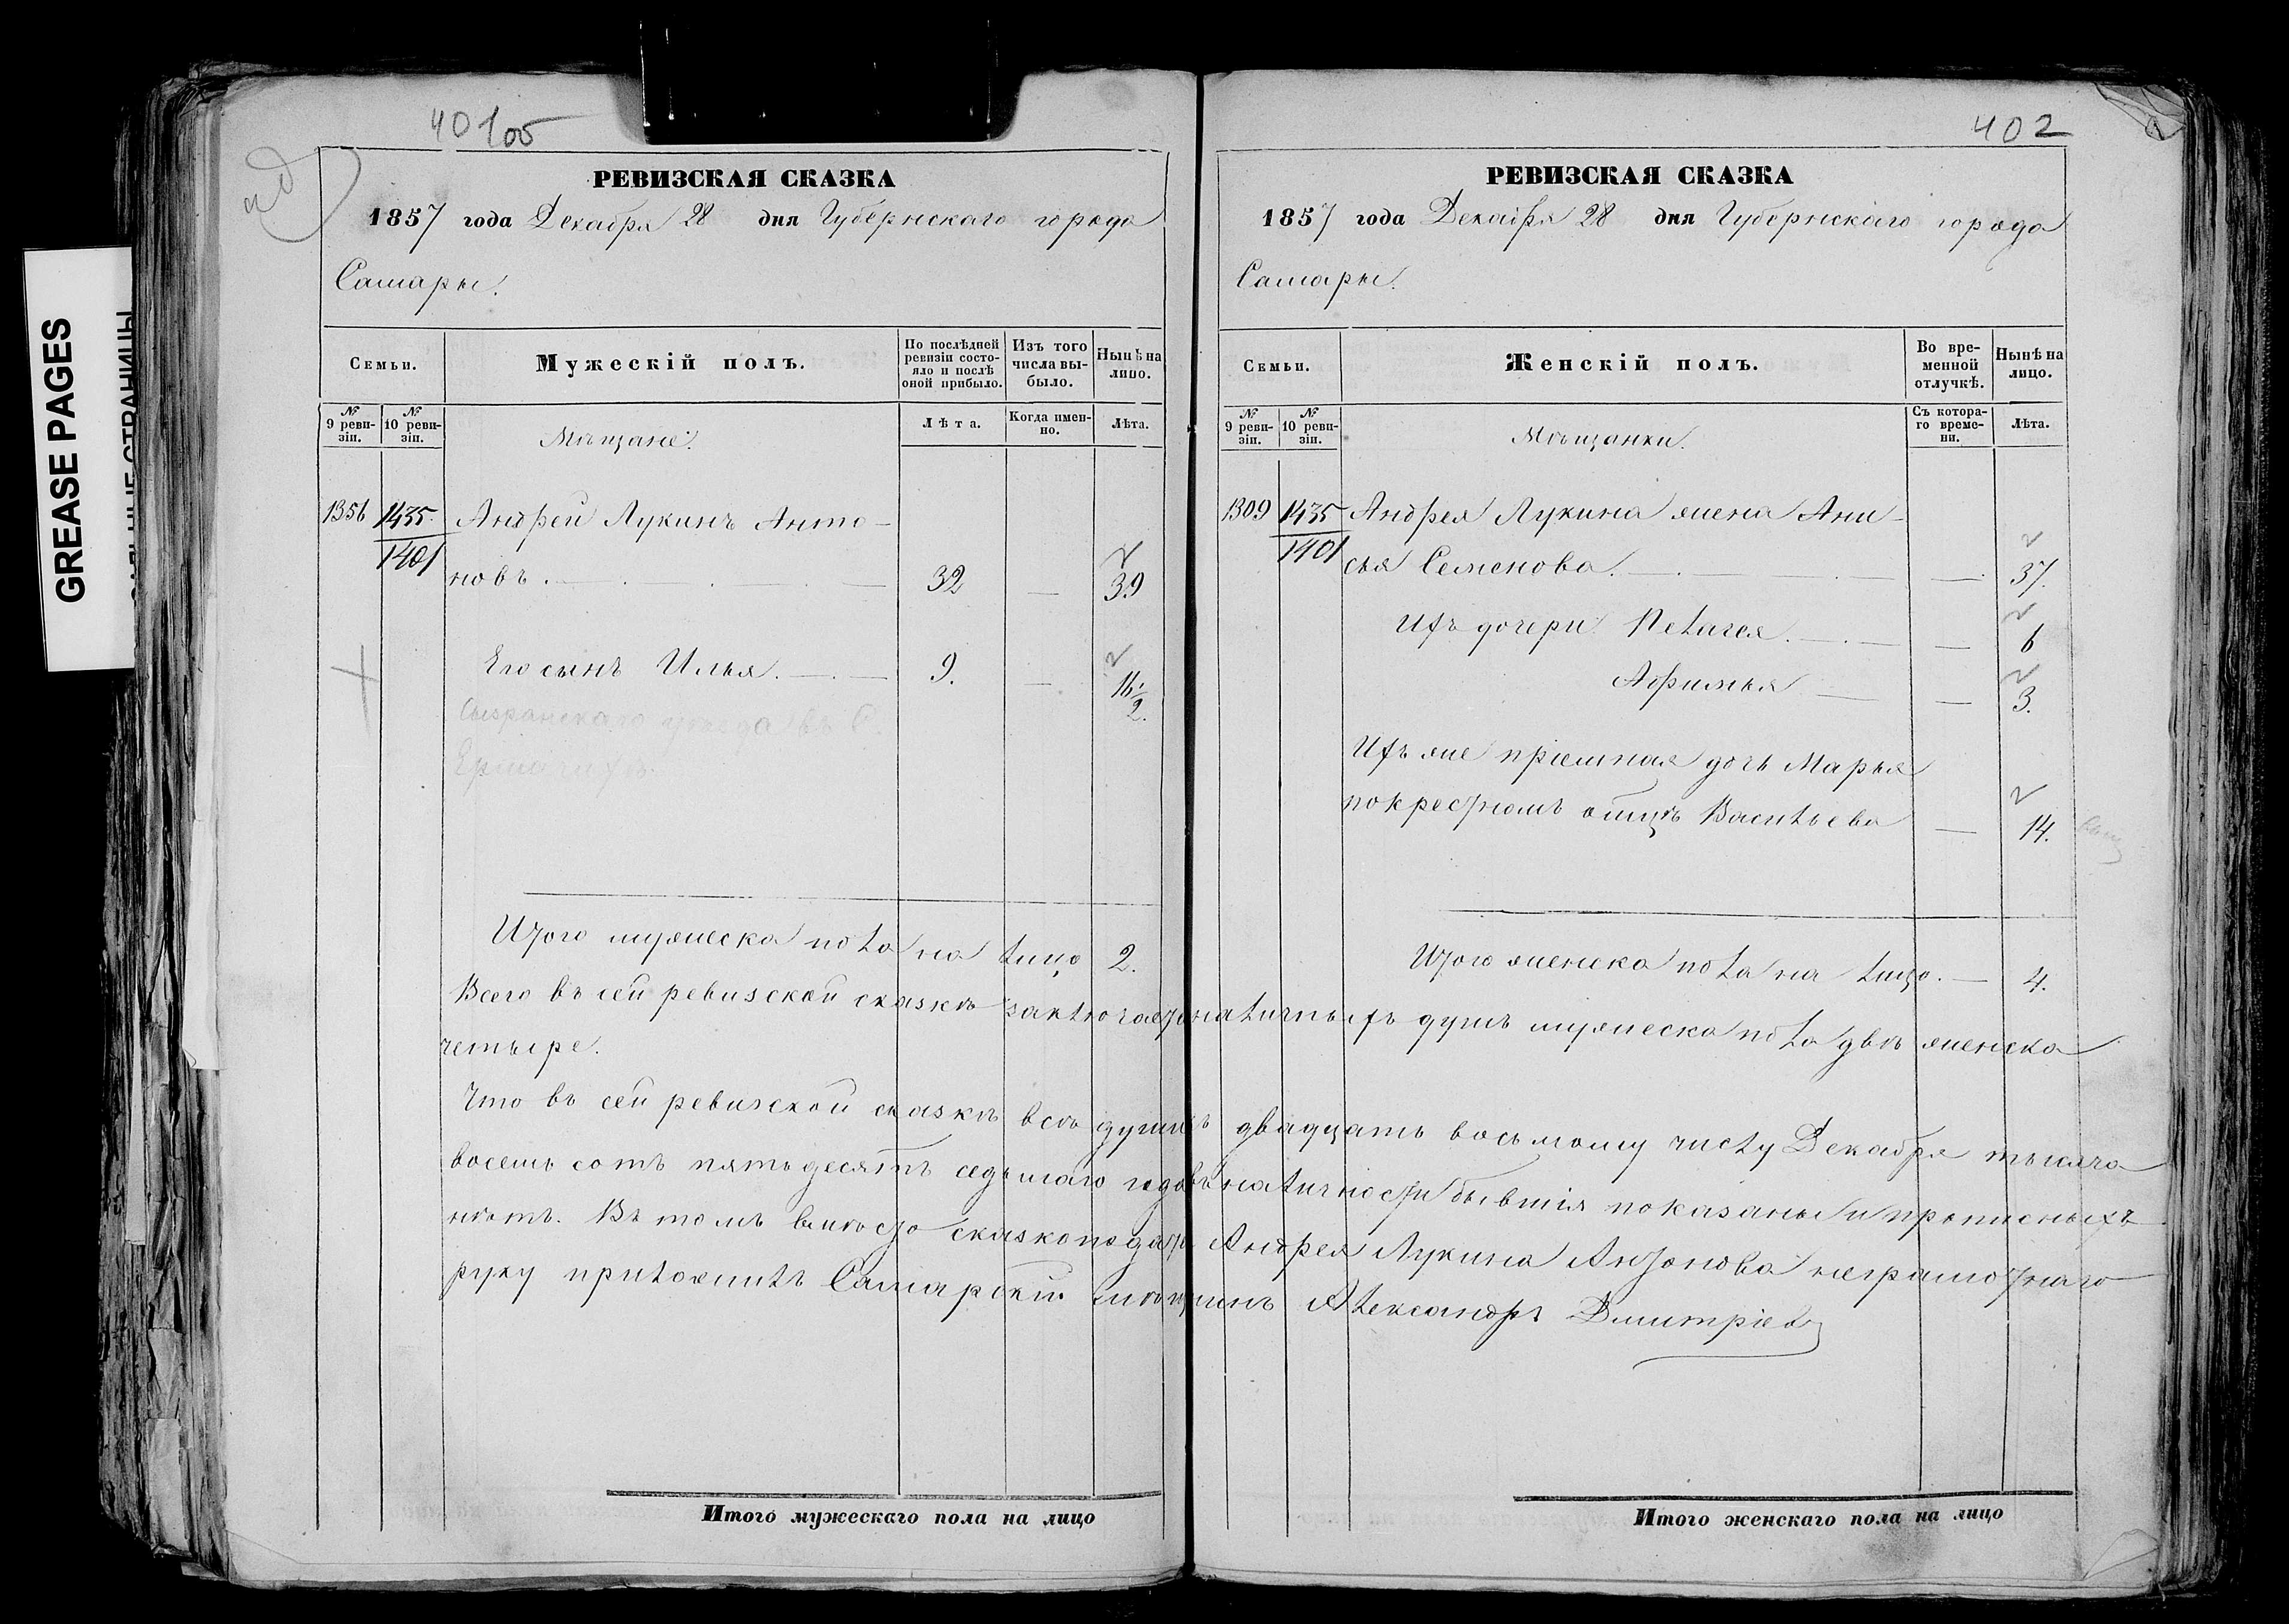 GREASE PAGES
401
402
РЕВИЗСКАЯ СКАЗКА
1857 года Декабря 28 дня Губернскаго города
Самары.
Семьи.
Мужескій полъ.
По послѣдней ревизіи состояло и послѣ оной прибыло.
Изъ того числа выбыло.
Нынѣ на лицо.
№ 9 ревизіи.
№ 10 ревизіи.
Мѣщане.
Лѣта.
Когда именно.
Лѣта.
1356 1435 Андрей Лукинъ Анто-
1401
новъ. 32 — 39
Его сынъ Илья. 9. — 16 1/2.
Сызранскаго уѣзда въ С.
Итого мужеска пола на лицо 2.
РЕВИЗСКАЯ СКАЗКА
1857 года Декабря 28 дня Губернскаго города
Самары.
Семьи.
Женскій полъ.
Во временной отлучкѣ.
Нынѣ на лицо.
№ 9 ревизіи.
№ 10 ревизіи.
Мѣщанки.
Съ котораго времени.
Лѣта.
1309 1435 Андрея Лукина жена Ани-
1401
сья Семенова. — 37.
Ихъ дочери Пелагея. — 6
Афимья — 3.
Ихъ же пріемная дочь Марья
по крестномъ отцѣ Васильева — 14.
Итого женска пола на лицо. — 4.
Всего въ сей ревизской сказкѣ заключается наличныхъ душъ мужеска пола двѣ женска
четыре.
Что въ сей ревизской сказкѣ всѣ души къ двадцать восьмому числу Декабря тысяча
восемь сотъ пятьдесятъ седьмаго года въ наличности бывшія показаны и прописныхъ
нѣтъ. Въ томъ вмѣсто сказкоподателя Андрея Лукина Антонова неграмотнаго
руку приложилъ Самарскій мѣщанинъ Александръ Дмитріевъ
Итого мужескаго пола на лицо
Итого женскаго пола на лицо